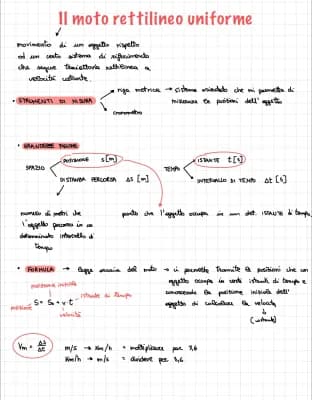 Il moto rettilineo uniforme
movimento di un oggetto rispetto
ad un certo sistema di riferimento
che segue traiettoria rettilinea a
velocità costante.
• STRUMENTI DI MISURA
riga metrica → sistema orientato che mi permette di
misurare le posizioni dell'oggetto
cronometro
• GRANDEZZE FISICHE
SPAZIO
POSIZIONE S [m]
DISTANZA PERCORSA ΔS [m]
TEMPO
ISTANTE t [s]
INTERVALLO DI TEMPO Δt [s]
numero di metri che
l'oggetto percorre in un
determinato intervallo di
tempo
punto che l'oggetto occupa in un det. ISTANTE di tempo
• FORMULA → legge oraria del moto → ci permette tramite le posizioni che un
oggetto occupa in certi istanti di tempo e
conoscendo la posizione iniziale dell'
oggetto di calcolare la velocità
posizione iniziale
S = S₀ + v · t
istante di tempo
posizione
velocità
Vm = ΔS/Δt
m/s → Km/h = moltiplicare per 3,6
Km/h → m/s = dividere per 3,6